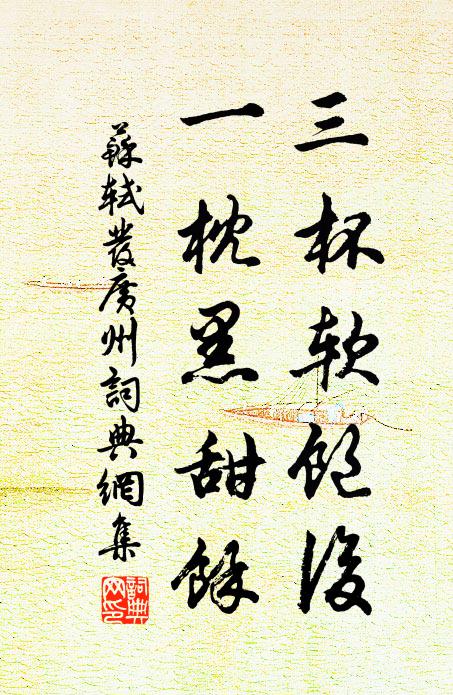 三杯軟飽後
一枕黑甜餘
蘇軾發廣州詞典網集
詞典网印